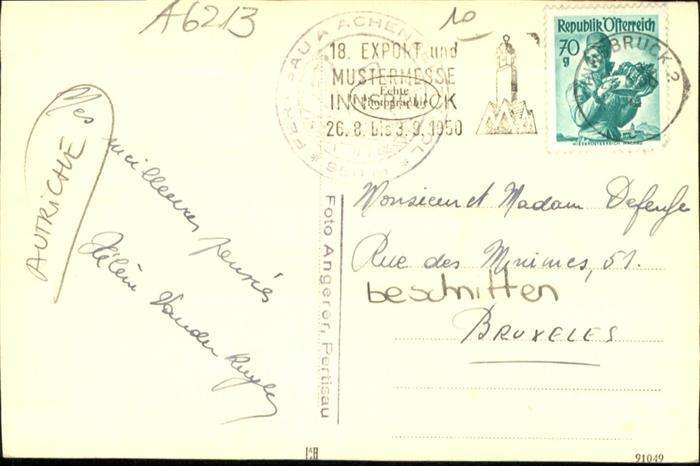 A6213
10
18. EXPORT und
MUSTERMESSE
INNSBRUCK
26.8. bis 3.9.1950
Echte
Photographie
Republik Österreich
70
g
NIEDERÖSTERREICH WACHAU
INNSBRUCK 2
AUTRICHE
Mes meilleures pensées
Hélène Vanden
Foto Angerer, Pertisau
Monsieur et Madam Defenge
Rue des Minimes, 51.
beschnitten
BRUXELES
91049